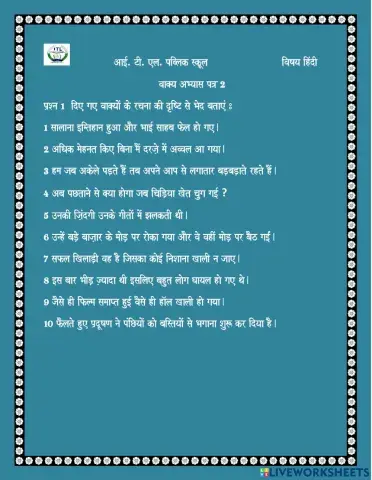 ITL
आई. टी. एल. पब्लिक स्कूल विषय हिंदी
वाक्य अभ्यास पत्र 2
प्रश्न 1 दिए गए वाक्यों के रचना की दृष्टि से भेद बताएं :
1 सालाना इम्तिहान हुआ और भाई साहब फेल हो गए।
2 अधिक मेहनत किए बिना मैं दरजे़ में अव्वल आ गया।
3 हम जब अकेले पड़ते हैं तब अपने आप से लगातार बड़बड़ाते रहते हैं।
4 अब पछताने से क्या होगा जब चिड़िया खेत चुग गई ?
5 उनकी ज़िंदगी उनके गीतों में झलकती थी।
6 उन्हें बड़े बाज़ार के मोड़ पर रोका गया और वे वहीं मोड़ पर बैठ गई।
7 सफल खिलाड़ी वह है जिसका कोई निशाना खाली न जाए।
8 इस बार भीड़ ज़्यादा थी इसलिए बहुत लोग घायल हो गए थे।
9 जैसे ही फिल्म समाप्त हुई वैसे ही हॉल खाली हो गया।
10 फैलते हुए प्रदूषण ने पंछियों को बस्तियों से भगाना शुरू कर दिया है।
LIVEWORKSHEETS